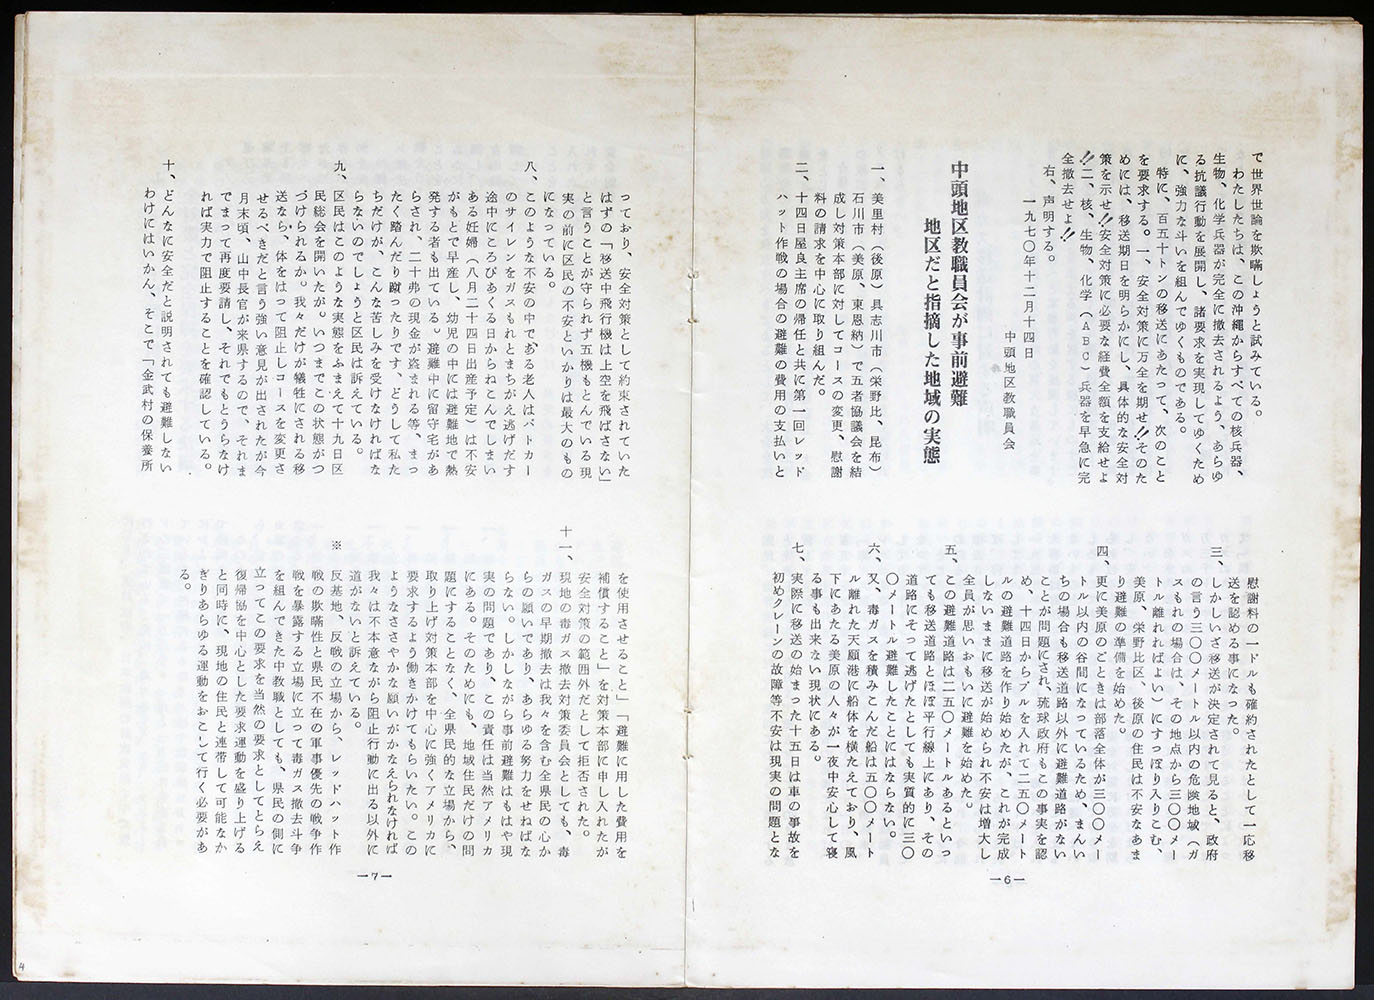 で世界世論を欺瞞しようと試みている。
わたしたちは、この沖縄からすべての核兵器、
生物、化学兵器が完全に撤去されるよう、あらゆ
る抗議行動を展開し、諸要求を実現してゆくため
に、強力な斗いを組んでゆくものである。
特に、百五十トンの移送にあたって、次のこと
を要求する。一、安全対策に万全を期せ!!そのた
めには、移送期日を明らかにし、具体的な安全対
策を示せ!!安全対策に必要な経費全額を支給せよ
!!二、核、生物、化学(ABC)兵器を早急に完
全撤去せよ!!
右、声明する。
一九七〇年十二月十四日
中頭地区教職員会
中頭地区教職員会が事前避難
地区だと指摘した地域の実態
一、美里村(後原)具志川市(栄野比、昆布)
石川市(美原、東恩納)で五者協議会を結
成し対策本部に対してコースの変更、慰謝
料の請求を中心に取り組んだ。
二、十四日屋良主席の帰任と共に第一回レッド
ハット作戦の場合の避難の費用の支払いと
慰謝料の一ドルも確約されたとして一応移
送を認める事になった。
三、しかしいざ移送が決定されて見ると、政府
の言う三〇〇メートル以内の危険地域(ガ
スもれの場合は、その地点から三〇〇メー
トル離れればよい)にすっぽり入りこむ、
美原、栄野比区、後原の住民は不安なあま
り避難の準備を始めた。
四、更に美原のごときは部落全体が三〇〇メー
トル以内の谷間になっているため、まんい
ちの場合も移送道路以外に避難道路がない
ことが問題にされ、琉球政府もこの事実を認
め、十四日からブルを入れて二五〇メート
ルの避難道路を作り始めたが、これが完成
しないままに移送が始められ不安は増大し
全員が思いおもいに避難を始めた。
五、この避難道路は二五〇メートルあるといっ
ても移送道路とほぼ平行線上にあり、その
道路にそって逃げたとしても実質的に三〇
〇メートル避難したことにはならない。
六、又、毒ガスを積みこんだ船は五〇〇メート
ル離れた天願港に船体を横たえており、風
下にあたる美原の人々が一夜中安心して寝
る事も出来ない現状にある。
七、実際に移送の始まった十五日は車の事故を
初めクレーンの故障等不安は現実の問題とな
—6—
っており、安全対策として約束されていた
はずの「移送中飛行機は上空を飛ばさない」
と言うことが守られず五機もとんでいる現
実の前に区民の不安といかりは最大のもの
になっている。
八、このような不安の中で、ある老人はパトカー
のサイレンをガスもれとまちがえ逃げだす
途中にころびあくる日からねこんでしまい
ある妊婦(八月二十四日出産予定)は不安
がもとで早産し、幼児の中には避難地で熱
発する者も出ている。避難中に留守宅があ
らされ、二十弗の現金が盗まれる等、まっ
たく踏んだり蹴ったりです、どうして私た
ちだけが、こんな苦しみを受けなければな
らないのでしょうと区民は訴えている。
九、区民はこのような実態をふまえて十九日区
民総会を開いたが。いつまでこの状態がつ
づけられるか。我々だけが犠牲にされる移
送なら、体をはって阻止しコースを変更さ
せるべきだと言う強い意見が出されたが今
月末頃、山中長官が来県するので、それま
でまって再度要請し、それでもとうらなけ
れば実力で阻止することを確認している。
十、どんなに安全だと説明されても避難しない
わけにはいかん、そこで「金武村の保養所
を使用させること」「避難に用した費用を
補償すること」を対策本部に申し入れたが
安全対策の範囲外だとして拒否された。
十一、現地の毒ガス撤去対策委員会としても、毒
ガスの早期撤去は我々を含む全県民の心か
らの願いであり、あらゆる努力をせねばな
らない。しかしながら事前避難はもはや現
実の問題であり、この責任は当然アメリカ
にある。そのためにも、地域住民だけの問
題にすることなく、全県民的な立場から、
取り上げ対策本部を中心に強くアメリカに
要求するよう働きかけてもらいたい。この
ようなささやかな願いがかなえられなければ
我々は不本意ながら阻止行動に出る以外に
道がないと訴えている。
※ 反基地、反戦の立場から、レッドハット作
戦の欺瞞性と県民不在の軍事優先の戦争作
戦を暴露する立場に立って毒ガス撤去斗争
を組んできた中教職としても、県民の側に
立ってこの要求を当然の要求としてとらえ
復帰協を中心とした要求運動を盛り上げる
と同時に、現地の住民と連帯して可能なか
ぎりあらゆる運動をおこして行く必要があ
る。
—7—
4